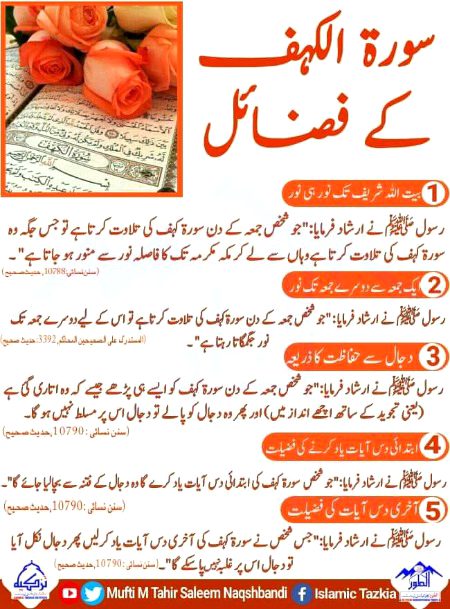 سورۃ الکہف
کے فضائل
سُوْرَةُ الْكَهْفِ
1 بیت اللہ شریف تک نور ہی نور
رسول ﷺ نے ارشاد فرمایا:"جو شخص جمعہ کے دن سورۃ کہف کی تلاوت کرتا ہے تو جس جگہ وہ
سورۃ کہف کی تلاوت کرتا ہے وہاں سے لے کر مکہ مکرمہ تک کا فاصلہ نور سے منور ہو جاتا ہے"۔
(سنن نسائی:10788، حدیث صحیح)
2 یک جمعہ سے دوسرے جمعہ تک نور
رسول ﷺ نے ارشاد فرمایا: "جو شخص جمعہ کے دن سورۃ کہف کی تلاوت کرتا ہے تو اس کے لیے دوسرے جمعہ تک
نور جگمگاتا رہتا ہے"۔ (المستدرک علی الصحیحین للحاکم:3392، حدیث صحیح)
3 دجال سے حفاظت کا ذریعہ
رسول ﷺ نے ارشاد فرمایا: "جو شخص جمعہ کے دن سورۃ کہف کو ایسے ہی پڑھے جیسے کہ وہ اتاری گئی ہے
(یعنی تجوید کے ساتھ اچھے انداز میں) اور پھر وہ دجال کو پا لے تو دجال اس پر مسلط نہیں ہو گا۔
(سنن نسائی :10790، حدیث صحیح)
4 ابتدائی دس آیات یاد کرنے کی فضیلت
رسول ﷺ نے ارشاد فرمایا: "جو شخص سورۃ کہف کی ابتدائی دس آیات یاد کرے گا وہ دجال کے فتنہ سے بچا لیا جائے گا"۔
(سنن نسائی :10790، حدیث صحیح)
5 آخری دس آیات کی فضیلت
رسول ﷺ نے ارشاد فرمایا: "جس شخص نے سورۃ کہف کی آخری دس آیات یاد کر لیں پھر دجال نکل آیا
تو دجال اس پر غلبہ نہیں پا سکے گا"۔ (سنن نسائی :10790، حدیث صحیح)
تزکیہ
Mufti M Tahir Saleem Naqshbandi
Islamic Tazkia
الطور